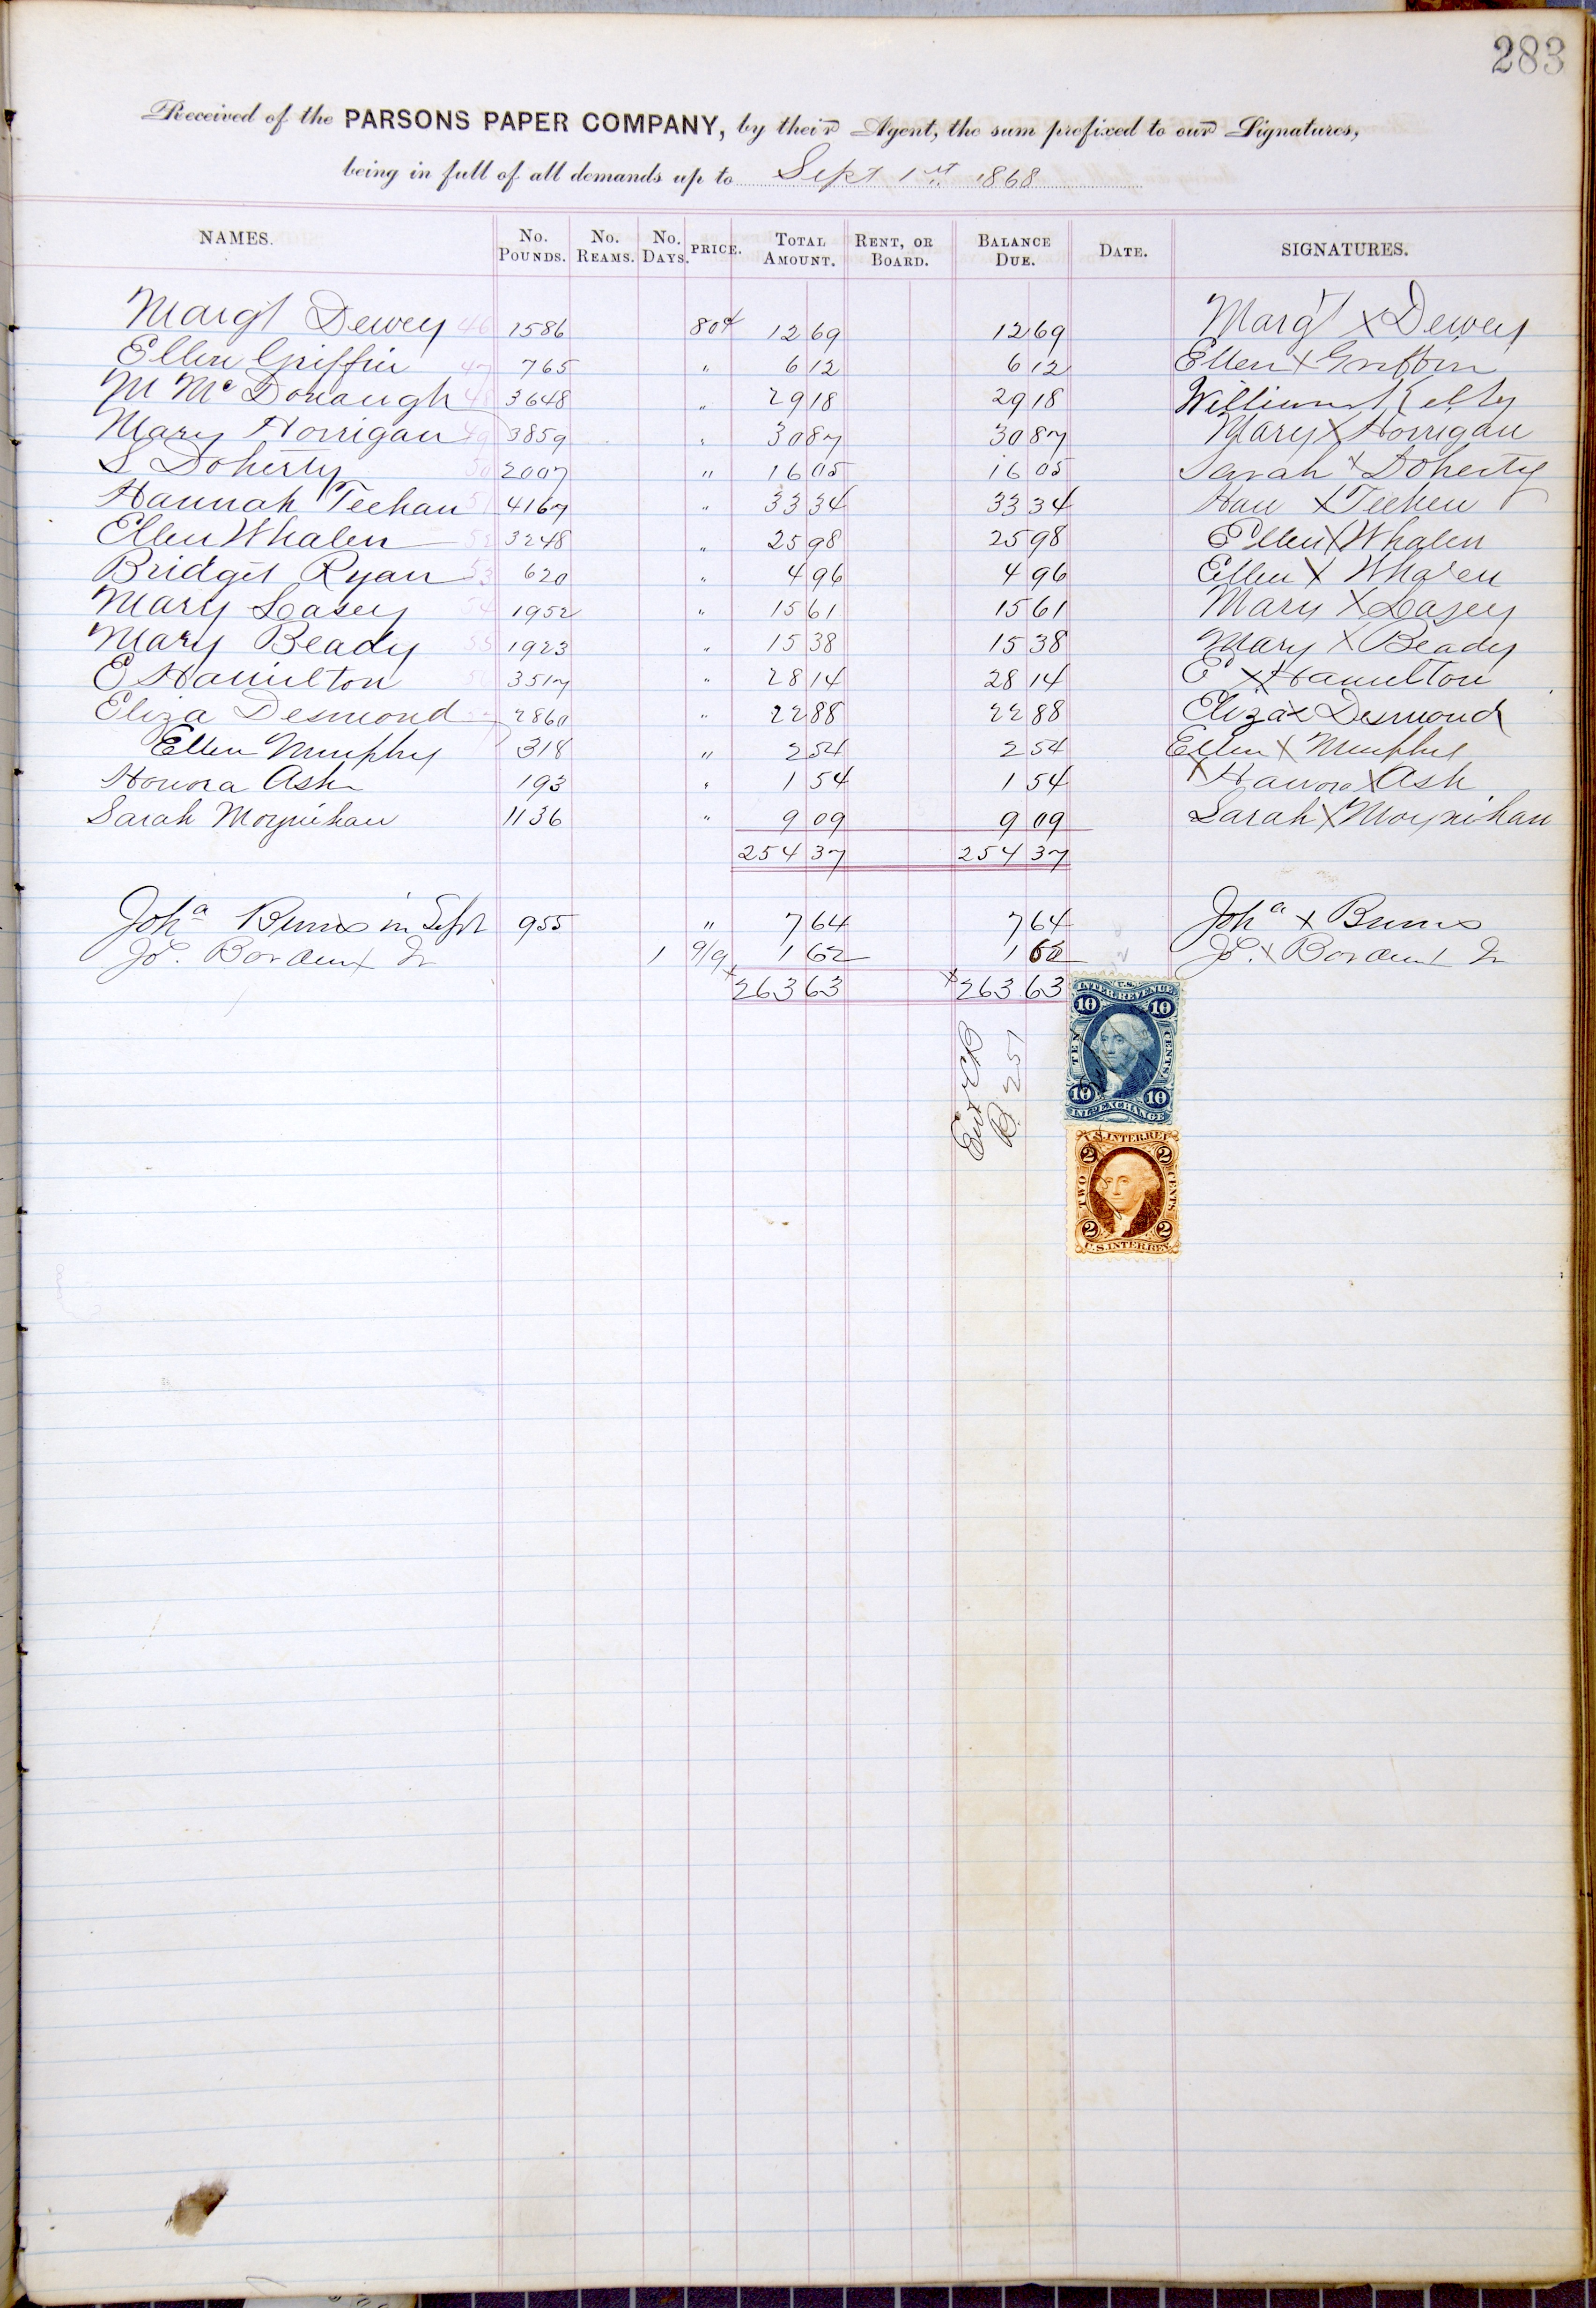 283
Received of the PARSONS PAPER COMPANY, by their Agent, the sum prefixed to our Signatures,
being in full of all demands up to Sept 1st 1868
NAMES. No. POUNDS. No. REAMS. No. DAYS. PRICE. TOTAL AMOUNT. RENT, OR BOARD. BALANCE DUE. DATE. SIGNATURES.
Margt Dewey 46 1586 80¢ 12 69 12 69 Margt X Dewey
Ellen Griffin 47 765 " 6 12 6 12 Ellen X Griffin
M McDonaugh 48 3648 " 29 18 29 18 William Kelly
Mary Horrigan 49 3859 " 30 87 30 87 Mary X Horrigan
S Doherty 50 2007 " 16 05 16 05 Sarah X Doherty
Hannah Teehan 51 4167 " 33 34 33 34 Han X Teehen
Ellen Whalen 52 3248 " 25 98 25 98 Ellen X Whalen
Bridget Ryan 53 620 " 4 96 4 96 Ellen X Whalen
Mary Casey 54 1952 " 15 61 15 61 Mary X Casey
Mary Beady 55 1923 " 15 38 15 38 Mary X Beady
E Hamilton 56 3517 " 28 14 28 14 E X Hamilton
Eliza Desmond 57 2860 " 22 88 22 88 Eliza X Desmond
Ellen Murphy 318 " 2 54 2 54 Ellen X Murphy
Honora Ash 193 " 1 54 1 54 X Hanora X Ash
Sarah Moynihan 1136 " 9 09 9 09 Sarah X Moynihan
254 37 254 37
Joha Burns in Sept 955 " 7 64 7 64 Joha X Burns
Jo. Bordeux Jr 1 9/9 1 62 1 62 Jo. X Jr
263 63 263 63
U.S. INTER. REVENUE
10 10
TEN CENTS.
10 10
INL. EXCHANGE
Ent CB
P. 251
U.S. INTER. REV.
2 2
TWO CENTS
2 2
U.S. INTER. REV.